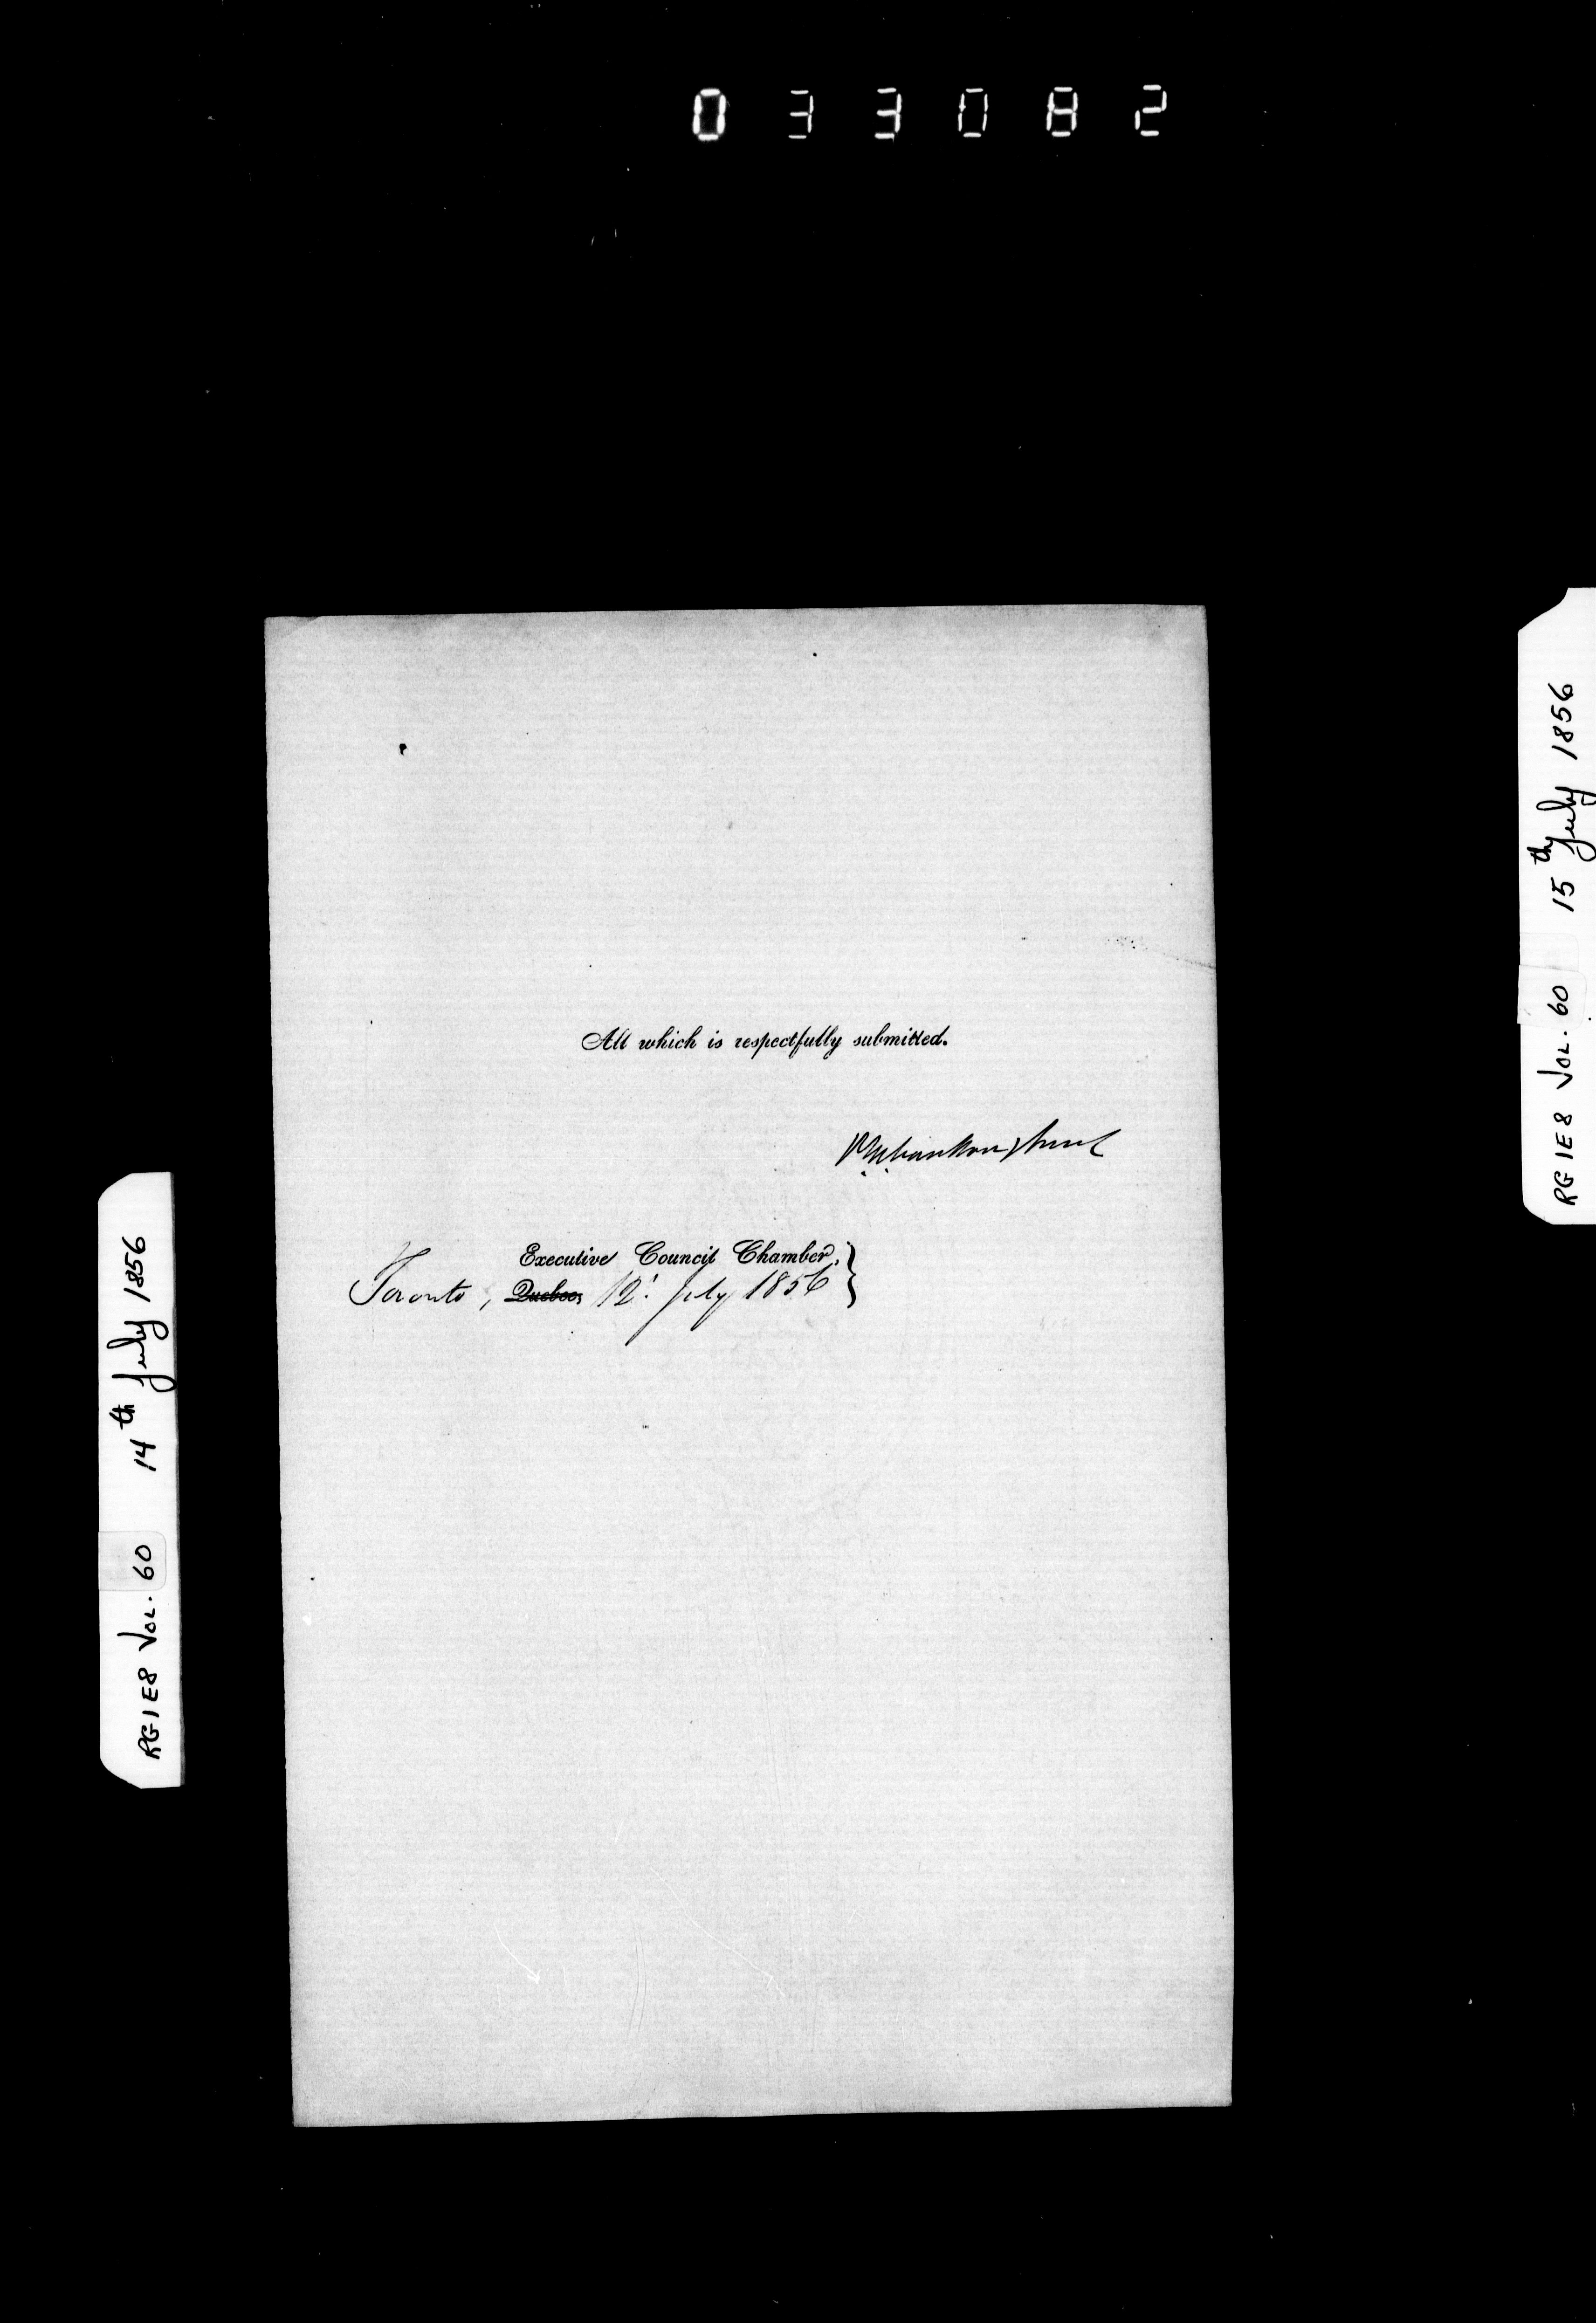 033082
All which is respectfully submitted.
Executive Council Chamber,
Toronto, Quebec, 12t July 1856
RG1E8 VOL. 60 14th July 1856
RG1E8 VOL. 60 15th July 1856